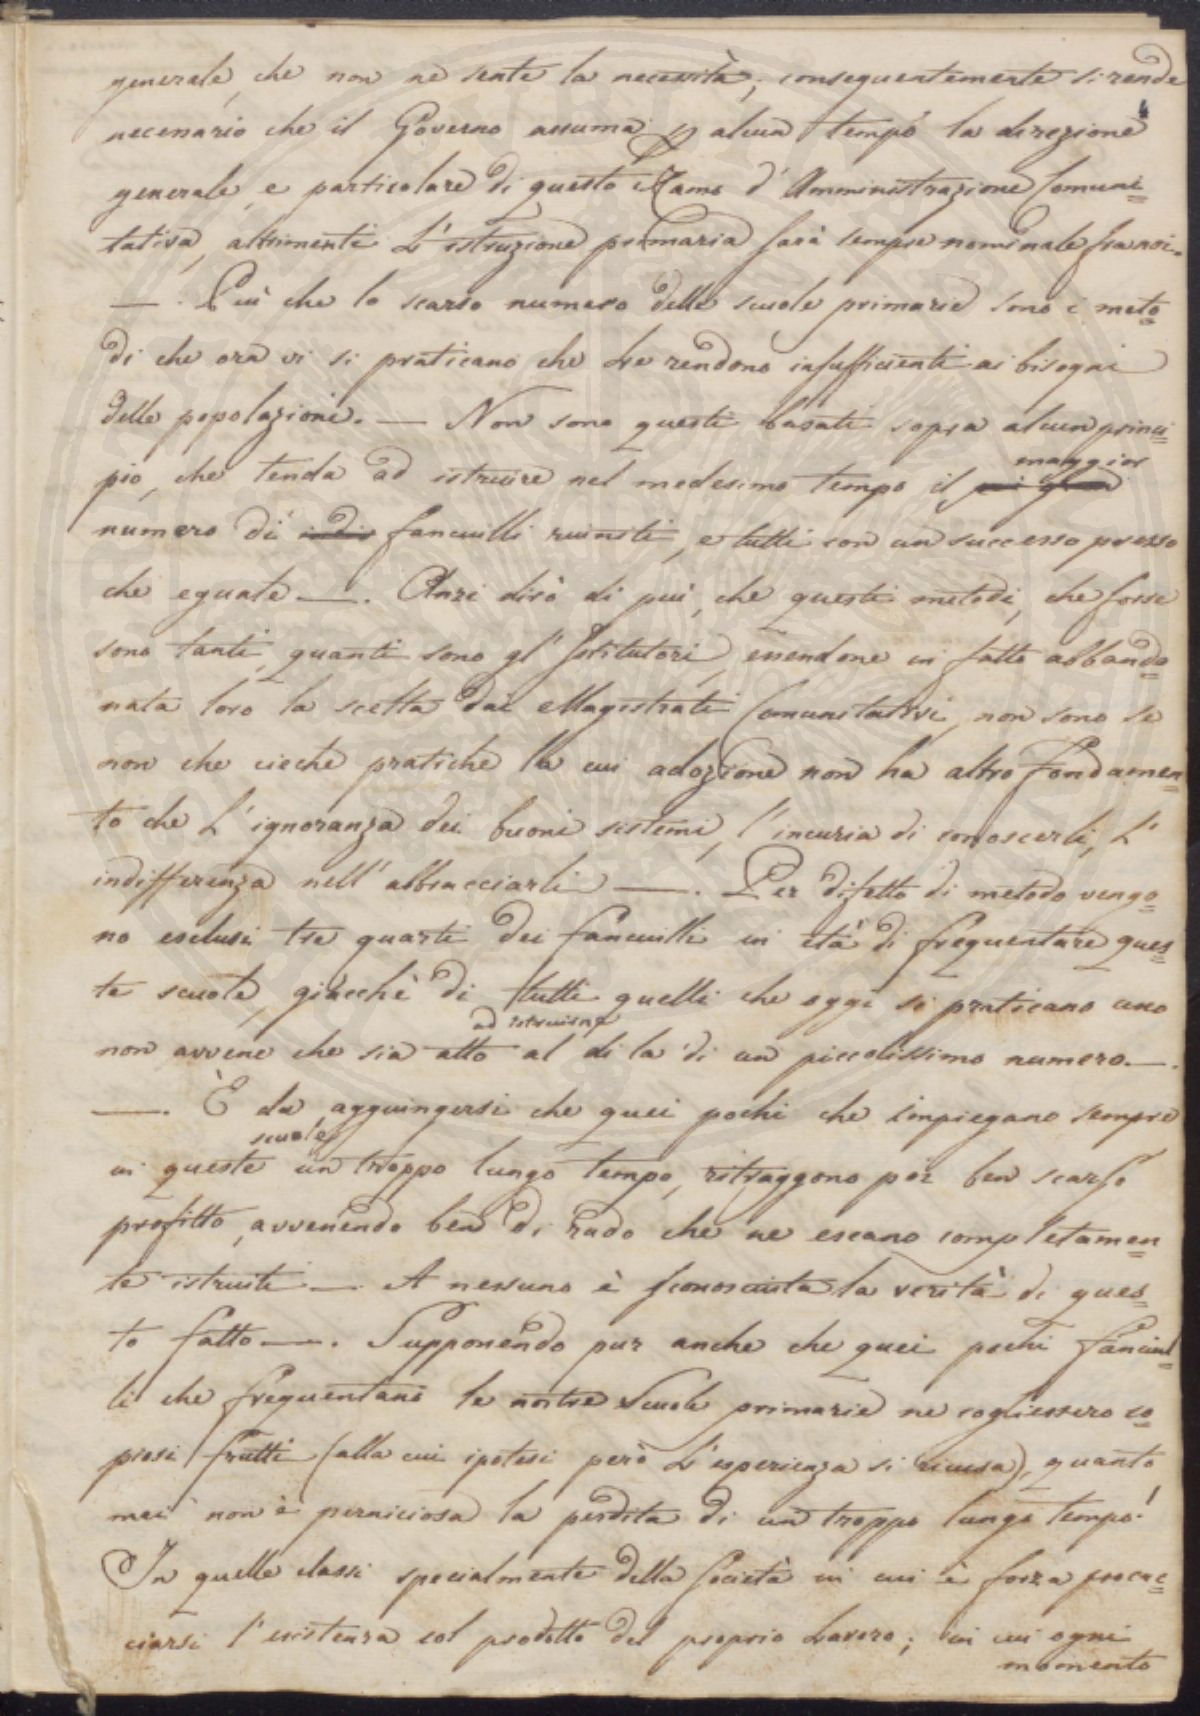 generale, che non ne sente la necessità; conseguentemente si rende
necessario che il Governo assuma p alcun tempo la direzione
generale, e particolare di questo Ramo d'Amministrazione Comuni=
tativa, altrimenti L'istruzione primaria sarà sempre nominale fra noi.
—. Più che lo scarso numero delle scuole primarie sono i meto=
di che ora vi si praticano che Le rendono insufficienti ai bisogni
delle popolazioni. — Non sono questi basati sopra alcun princi=
pio, che tenda ad istruire nel medesimo tempo il maggior
numero di fanciulli riuniti, e tutti con un successo presso
che eguale —. Anzi dirò di più, che questi metodi, che forse
sono tanti, quanti sono gl'Istitutori, essendone in fatto abbando=
nata loro la scelta dai Magistrati Comunitativi, non sono se
non che cieche pratiche la cui adozione non ha altro fondamen=
to che L'ignoranza dei buoni sistemi, l'incuria di conoscerli, L'
indifferenza nell'abbracciarli —. Per difetto di metodo vengo=
no esclusi tre quarti dei fanciulli in età di frequentare ques=
te scuole, giacchè di tutti quelli che oggi si praticano uno
non avvene che sia atto ad istruirne al di la di un piccolissimo numero. —.
—. È da aggiungersi che quei pochi che impiegano sempre
in queste scuole un troppo lungo tempo, ritraggono poi ben scarso
profitto, avvenendo ben di rado che ne escano completamen=
te istruiti —. A nessuno è sconosciuta la verità di ques=
to fatto —. Supponendo pur anche che quei pochi fanciul=
li che frequentano le nostre Scuole primarie ne cogliessero co=
piosi frutti (alla cui ipotesi però L'esperienza si ricusa), quanto
mai non è perniciosa la perdita di un troppo lungo tempo!
In quelle classi specialmente della Società in cui è forza procac=
ciarsi l'esistenza col prodotto del proprio Lavoro; in cui ogni
momento